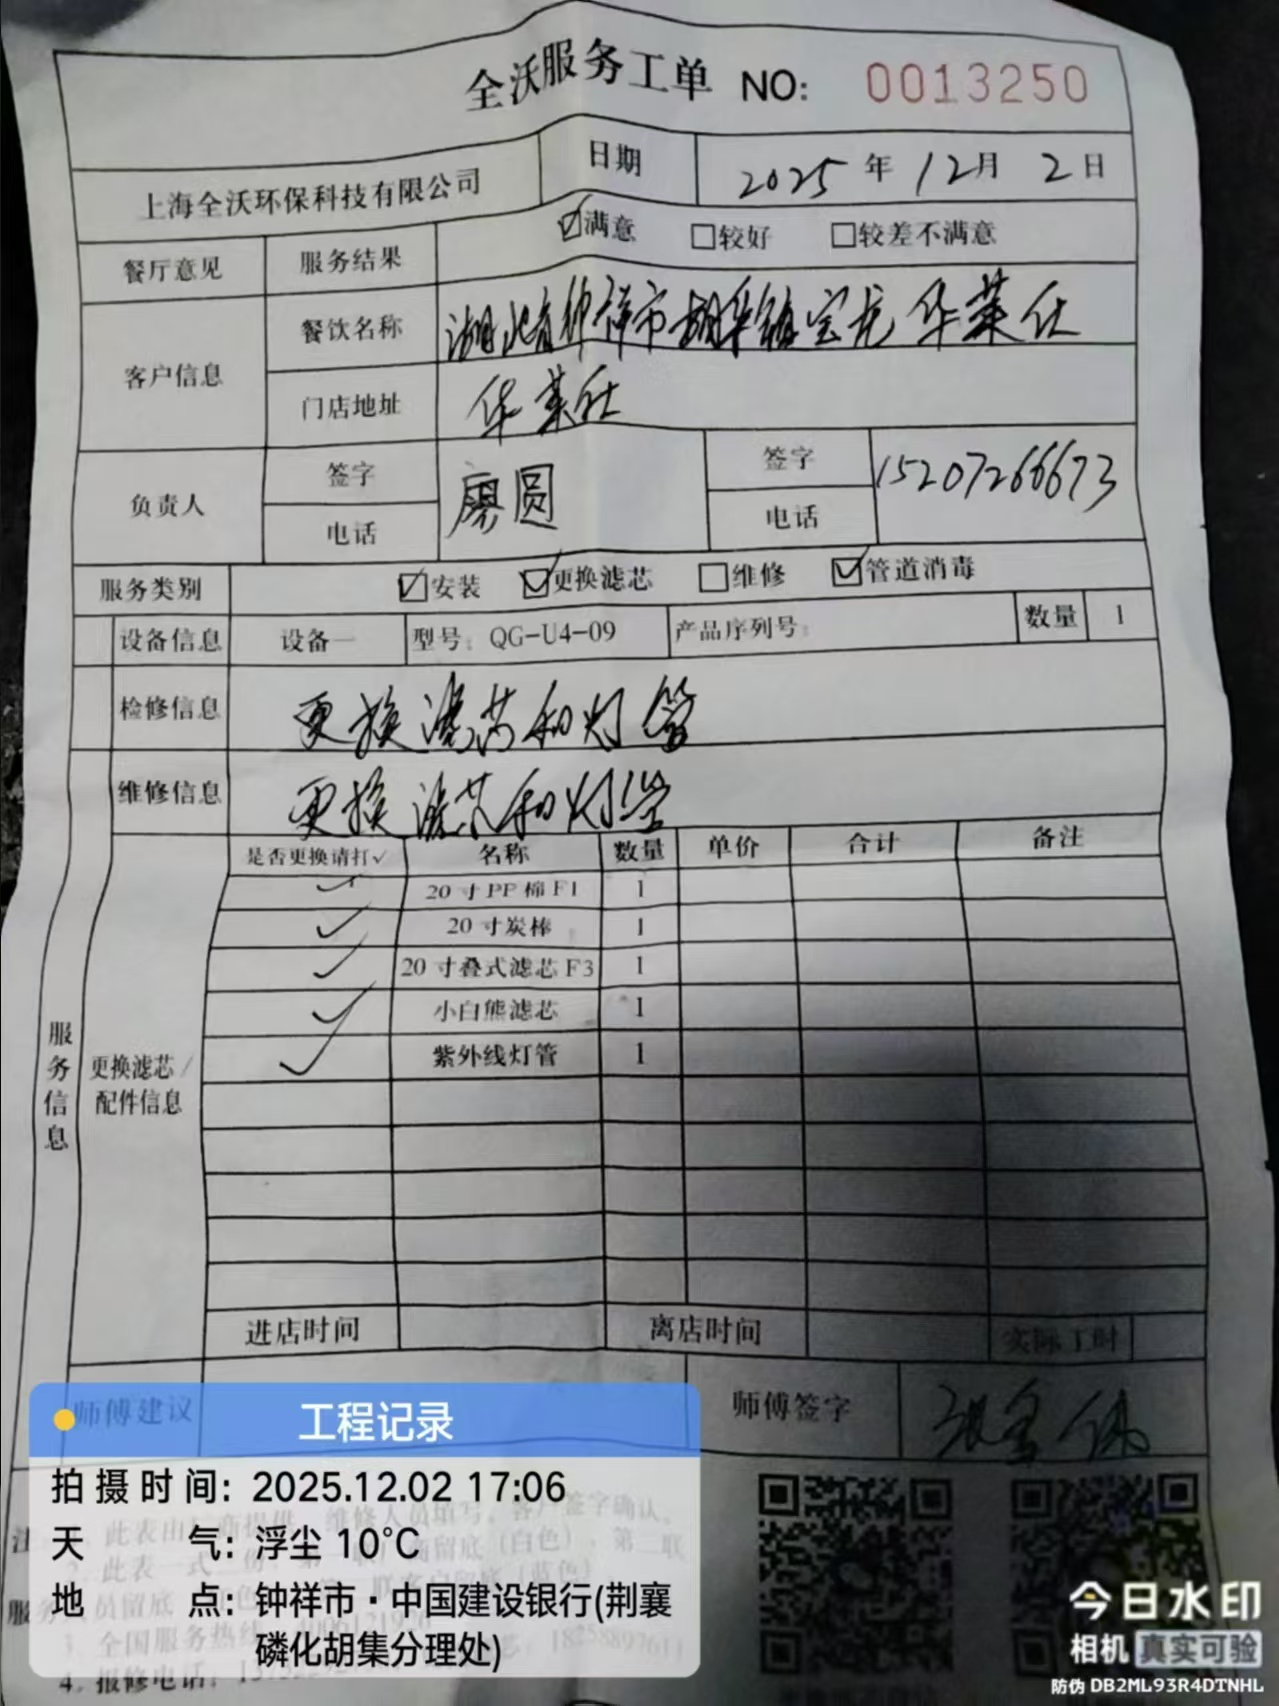 全沃服务工单 NO: 0013250
上海全沃环保科技有限公司 日期 2025年12月2日
餐厅意见 服务结果 ☑满意 □较好 □较差不满意
客户信息 餐饮名称 湖北省钟祥市胡集镇宝龙华莱仕
门店地址 华莱仕
负责人 签字 廖圆 签字 15207266673
电话 电话
服务类别 ☑安装 ☑更换滤芯 □维修 ☑管道消毒
设备信息 设备一 型号: QG-U4-09 产品序列号: 数量 1
检修信息 更换滤芯和灯管
维修信息 更换滤芯和灯管
服务信息
更换滤芯/
配件信息
是否更换请打✓ 名称 数量 单价 合计 备注
✓ 20寸PP棉F1 1
✓ 20寸炭棒 1
✓ 20寸叠式滤芯F3 1
✓ 小白熊滤芯 1
✓ 紫外线灯管 1
进店时间 离店时间 实际工时
师傅建议 师傅签字
工程记录
拍摄时间: 2025.12.02 17:06
天气: 浮尘 10°C
地点: 钟祥市·中国建设银行(荆襄
磷化胡集分理处)
维修人员填写, 客户签字确认。
此表一式
留底(白色), 第二联
全国服务热线
4. 报修电话:
今日水印
相机 真实可验
防伪 DB2ML93R4DTNHL